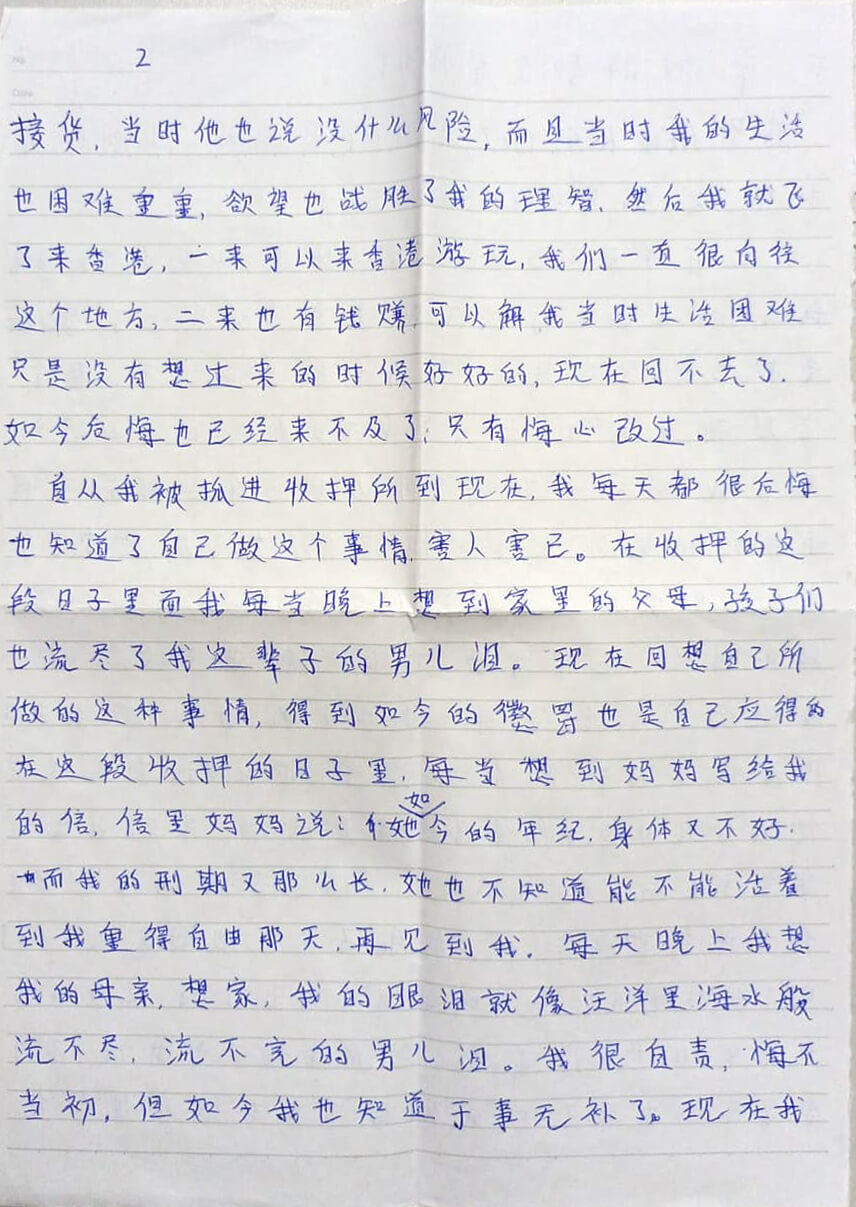 2
接货，当时他也说没什么风险，而且当时我的生活
也困难重重，欲望也战胜了我的理智，然后我就飞
了来香港，一来可以来香港游玩，我们一直很向往
这个地方，二来也有钱赚，可以解我当时生活困难
只是没有想过来的时候好好的，现在回不去了．
如今后悔也已经来不及了；只有悔心改过。
自从我被抓进收押所到现在，我每天都很后悔
也知道了自己做这个事情，害人害己。在收押的这
段日子里面我每当晚上想到家里的父母，孩子们
也流尽了我这辈子的男儿泪。现在回想自己所
做的这种事情，得到如今的惩罚也是自己应得的
在这段收押的日子里，每当想到妈妈写给我
的信，信里妈妈说：她如今的年纪，身体又不好．
而我的刑期又那么长，她也不知道能不能活着
到我重得自由那天，再见到我．每天晚上我想
我的母亲，想家，我的眼泪就像汪洋里海水般
流不尽，流不完的男儿泪。我很自责，悔不
当初，但如今我也知道于事无补了。现在我